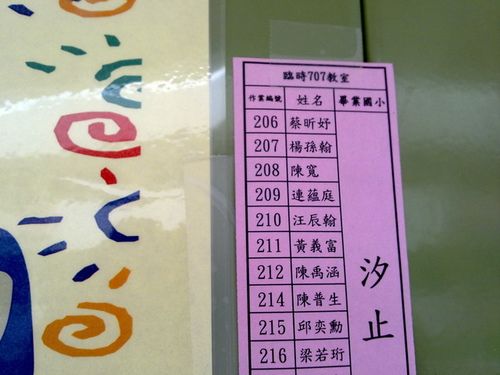 臨時707教室
作業編號 姓名 畢業國小
206 蔡昕妤
207 楊孫翰
208 陳寬
209 連蘊庭
210 汪辰翰
211 黃義富
212 陳禹涵
214 陳普生
215 邱奕勳
216 梁若珩
汐止